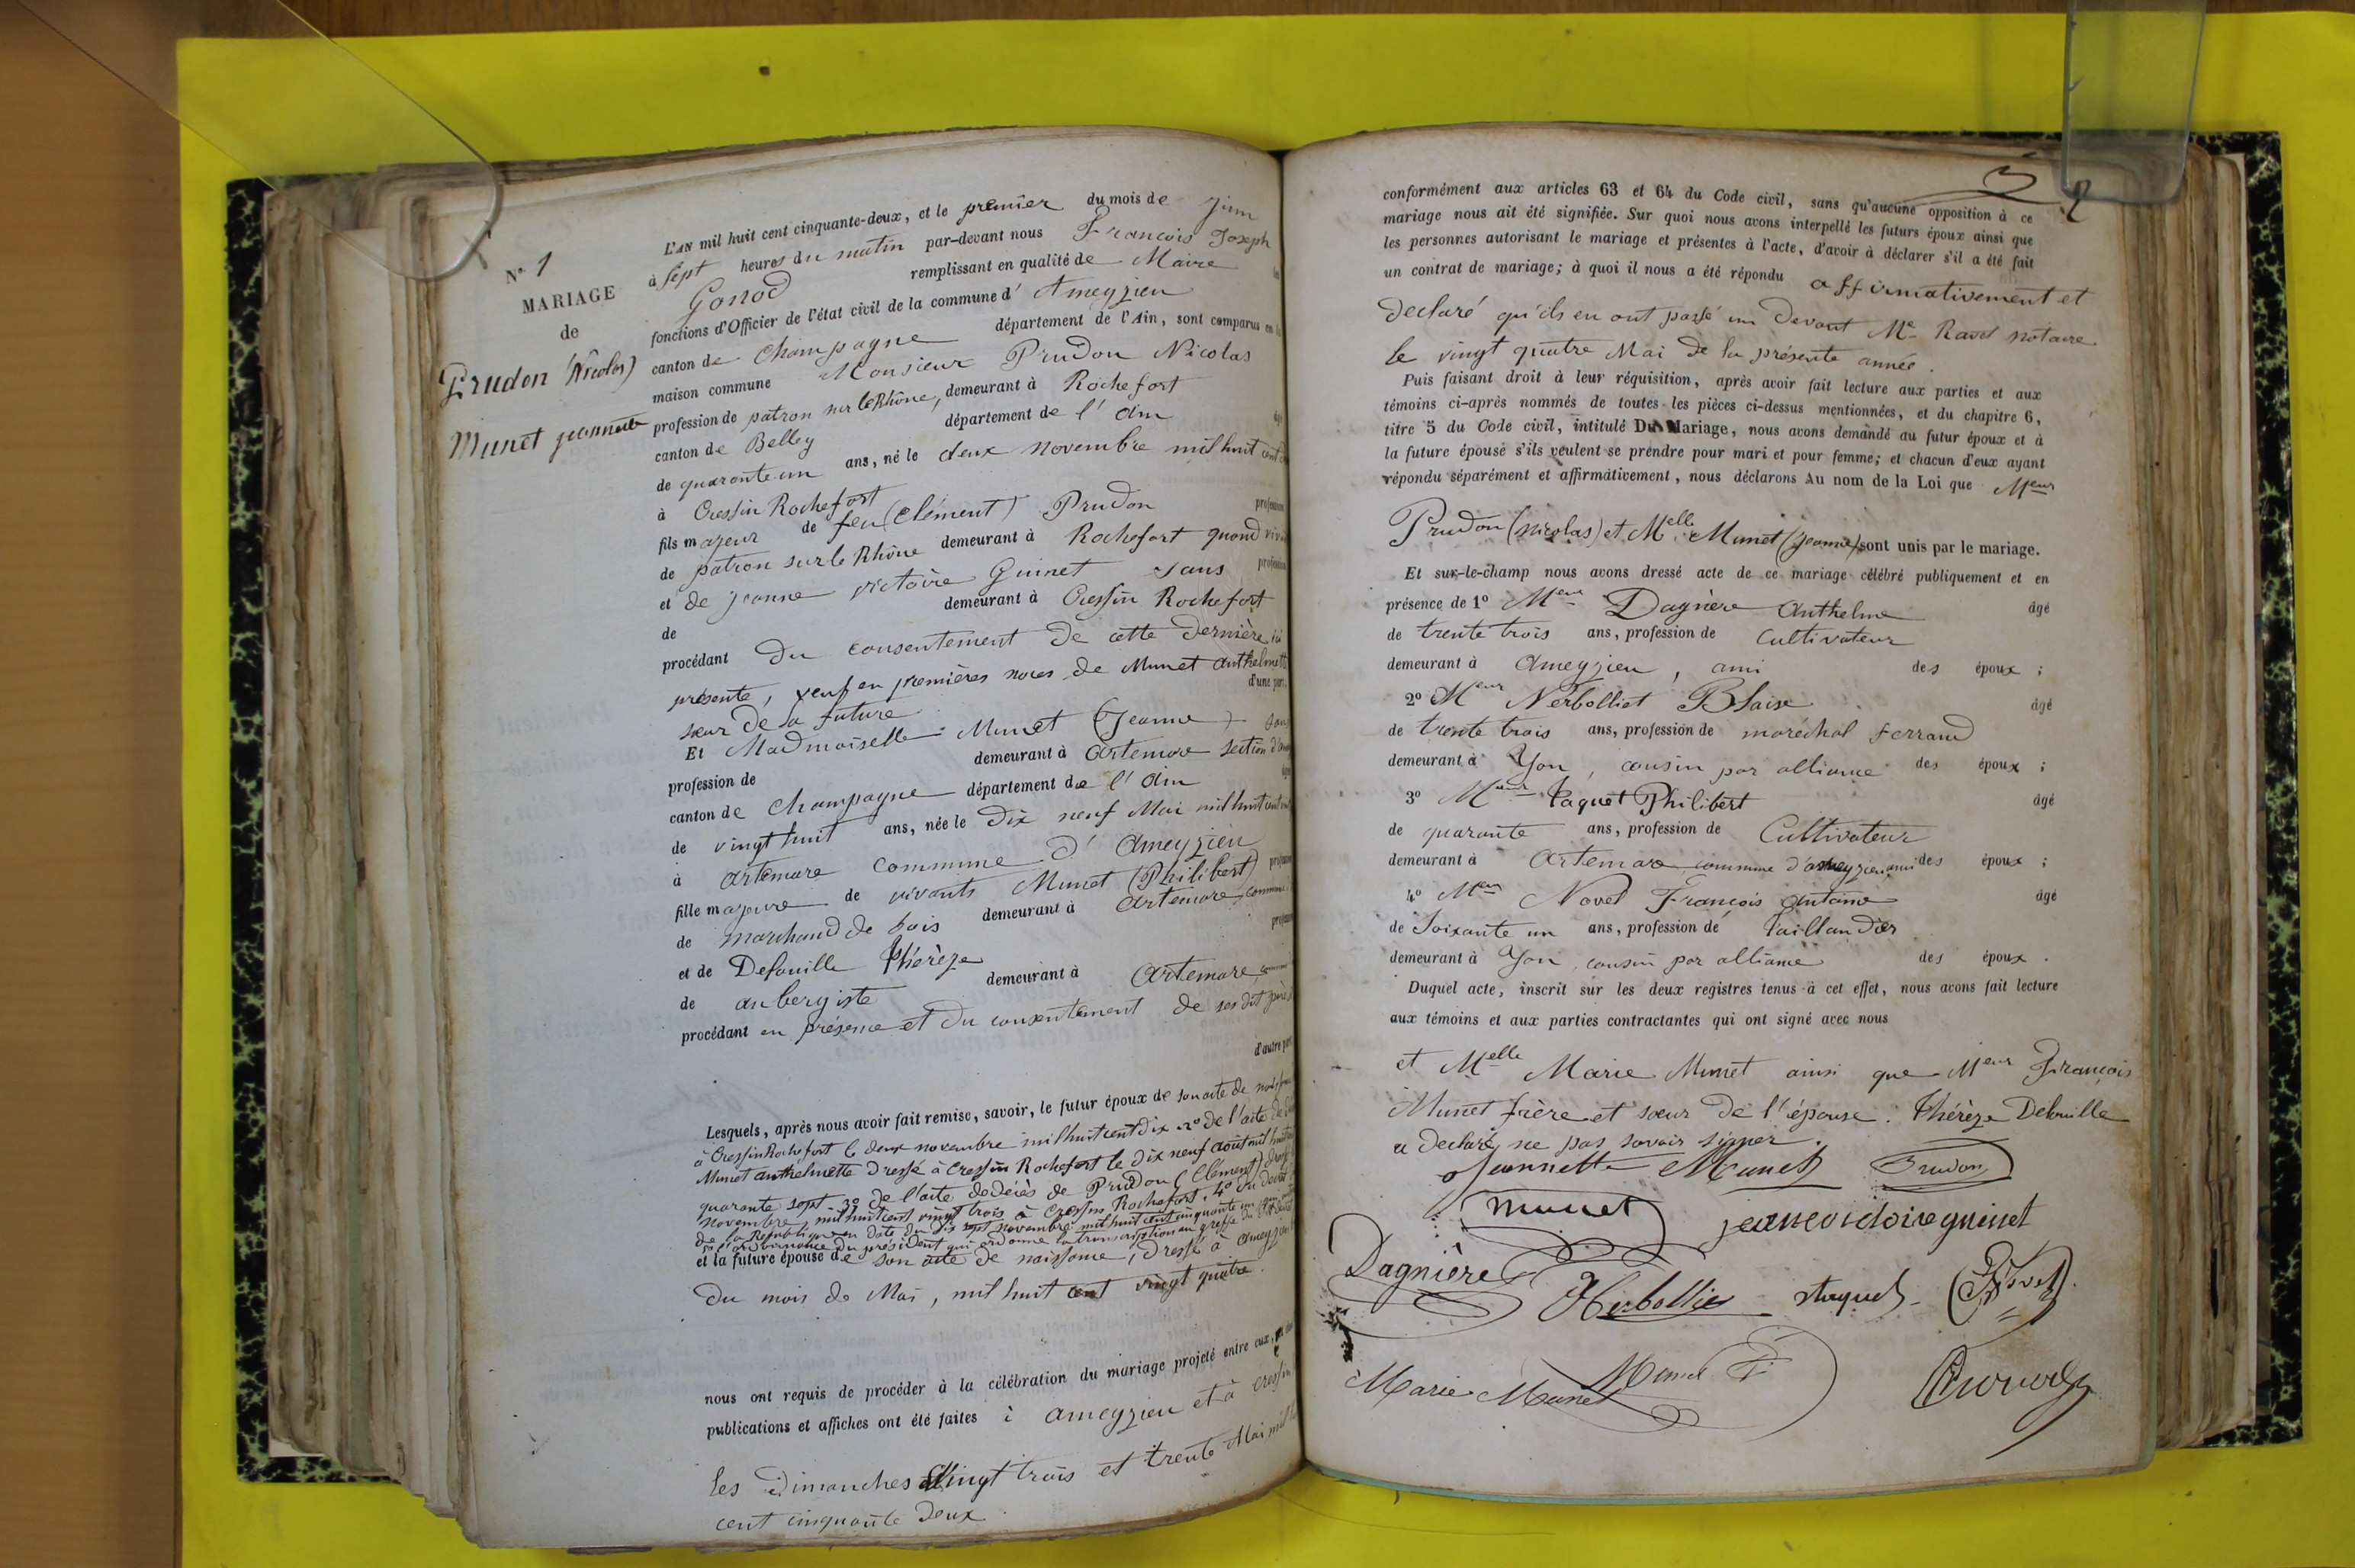 N° 1
MARIAGE
de
Prudon (Nicolas)
Munet jeannette
L'AN mil huit cent cinquante-deux, et le premier du mois de Juin
à sept heures du matin par-devant nous François Joseph
Gonod remplissant en qualité de Maire
fonctions d'Officier de l'état civil de la commune d' Ameyzieu
canton de Champagne département de l'Ain, sont comparus en
maison commune Monsieur Prudon Nicolas
profession de patron sur le Rhône, demeurant à Rochefort
canton de Belley département de l' Ain
de quarante un ans, né le deux novembre mil huit cent
à Cressin Rochefort
fils majeur de feu (Clément) Prudon
de patron sur le Rhône demeurant à Rochefort quand
et de jeanne victoire Guinet sans
de demeurant à Cressin Rochefort
procédant du consentement de cette dernière ici
présente, veuf en premières noces de Munet Anthelmette
d'une part,
sœur de la future
Et Madmoiselle Munet (Jeanne)
profession de demeurant à Artemare section
canton de Champagne département de l' Ain
de vingt huit ans, née le dix neuf Mai mil huit cent
à Artemare commune d' Ameyzieu
fille majeure de vivants Munet (Philibert)
de marchand de bois demeurant à Artemare, commune
et de Defouille Thérèze
de aubergiste demeurant à Artemare,
procédant en présence et du consentement de ses dit père
d'autre part
Lesquels, après nous avoir fait remise, savoir, le futur époux de son acte de naissance
à Cressin Rochefort le deux novembre mil huit cent dix 2° de l'acte de
Munet Anthelmette dressé à Cressin Rochefort le dix neuf août mil huit
quarante sept 3° de l'acte de décès de Prudon (Clément)
novembre mil huit cent vingt trois à Cressin Rochefort. 4° du décret
de la République en date du dix sept novembre mil huit cent cinquante un
l'ordonnance du président qui ordonne la transcription au greffe du
et la future épouse de son acte de naissance, dressé à Ameyzieu
du mois de Mai, mil huit cent vingt quatre.
nous ont requis de procéder à la célébration du mariage projeté entre eux,
publications et affiches ont été faites à Ameyzieu et à Cressin
les Dimanches Vingt trois et trente Mai mil
cent cinquante deux
3
2
conformément aux articles 63 et 64 du Code civil, sans qu'aucune opposition à ce
mariage nous ait été signifiée. Sur quoi nous avons interpellé les futurs époux ainsi que
les personnes autorisant le mariage et présentes à l'acte, d'avoir à déclarer s'il a été fait
un contrat de mariage; à quoi il nous a été répondu affirmativement et
declaré qu'ils en ont passé un devant Me Ravet notaire
le vingt quatre Mai de la présente année.
Puis faisant droit à leur réquisition, après avoir fait lecture aux parties et aux
témoins ci-après nommés de toutes les pièces ci-dessus mentionnées, et du chapitre 6,
titre 5 du Code civil, intitulé Du Mariage, nous avons demandé au futur époux et à
la future épouse s'ils veulent se prendre pour mari et pour femme; et chacun d'eux ayant
répondu séparément et affirmativement, nous déclarons Au nom de la Loi que Meur
Prudon (nicolas) et Melle Munet (jeanne) sont unis par le mariage.
Et sur-le-champ nous avons dressé acte de ce mariage célébré publiquement et en
présence de 1° Meur Dagnère Anthelme âgé
de trente trois ans, profession de Cultivateur
demeurant à Ameyzieu, ami des époux ;
2° Meur Nerbolliet Blaise âgé
de trente trois ans, profession de maréchal ferrand
demeurant à Yon, cousin par alliance des époux ;
3° Meur Taquet Philibert âgé
de quarante ans, profession de Cultivateur
demeurant à Artemare commune d'Ameyzieu ami des époux ;
4° Meur Novel François Antoine âgé
de Soixante un ans, profession de Taillandier
demeurant à Yon, cousin par alliance des époux .
Duquel acte, inscrit sur les deux registres tenus à cet effet, nous avons fait lecture
aux témoins et aux parties contractantes qui ont signé avec nous
et Melle Marie Munet ainsi que Meur François
Munet frère et sœur de l'épouse. Thérèze Defouille
a declaré ne pas savoir signer.
Jeannette Munet Prudon
Munet jeanne victoire guinet
Dagnière Nerbollie Novel
Marie Munet Munet